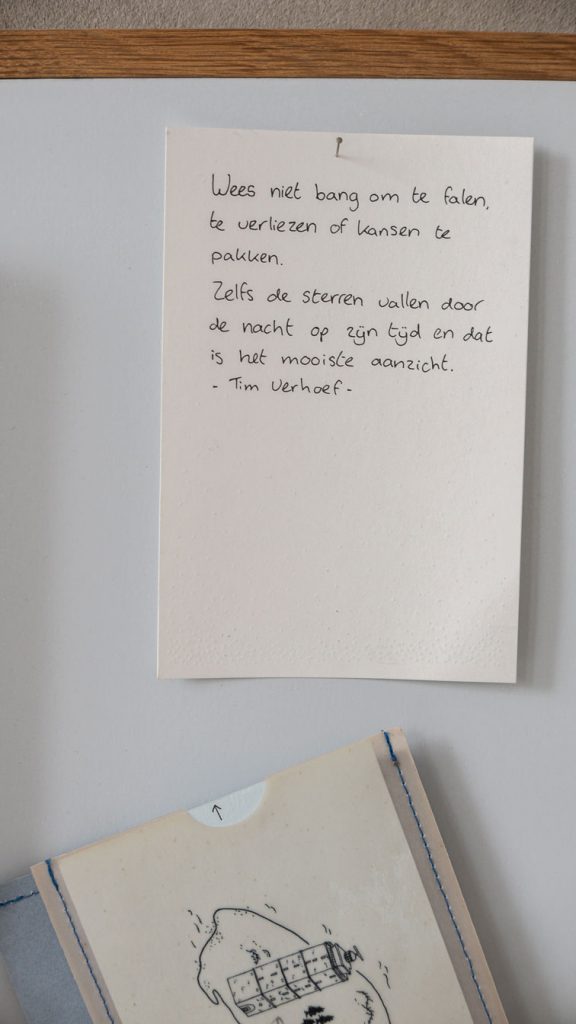 Wees niet bang om te falen,
te verliezen of kansen te
pakken.
Zelfs de sterren vallen door
de nacht op zijn tijd en dat
is het mooiste aanzicht.
- Tim Verhoef -